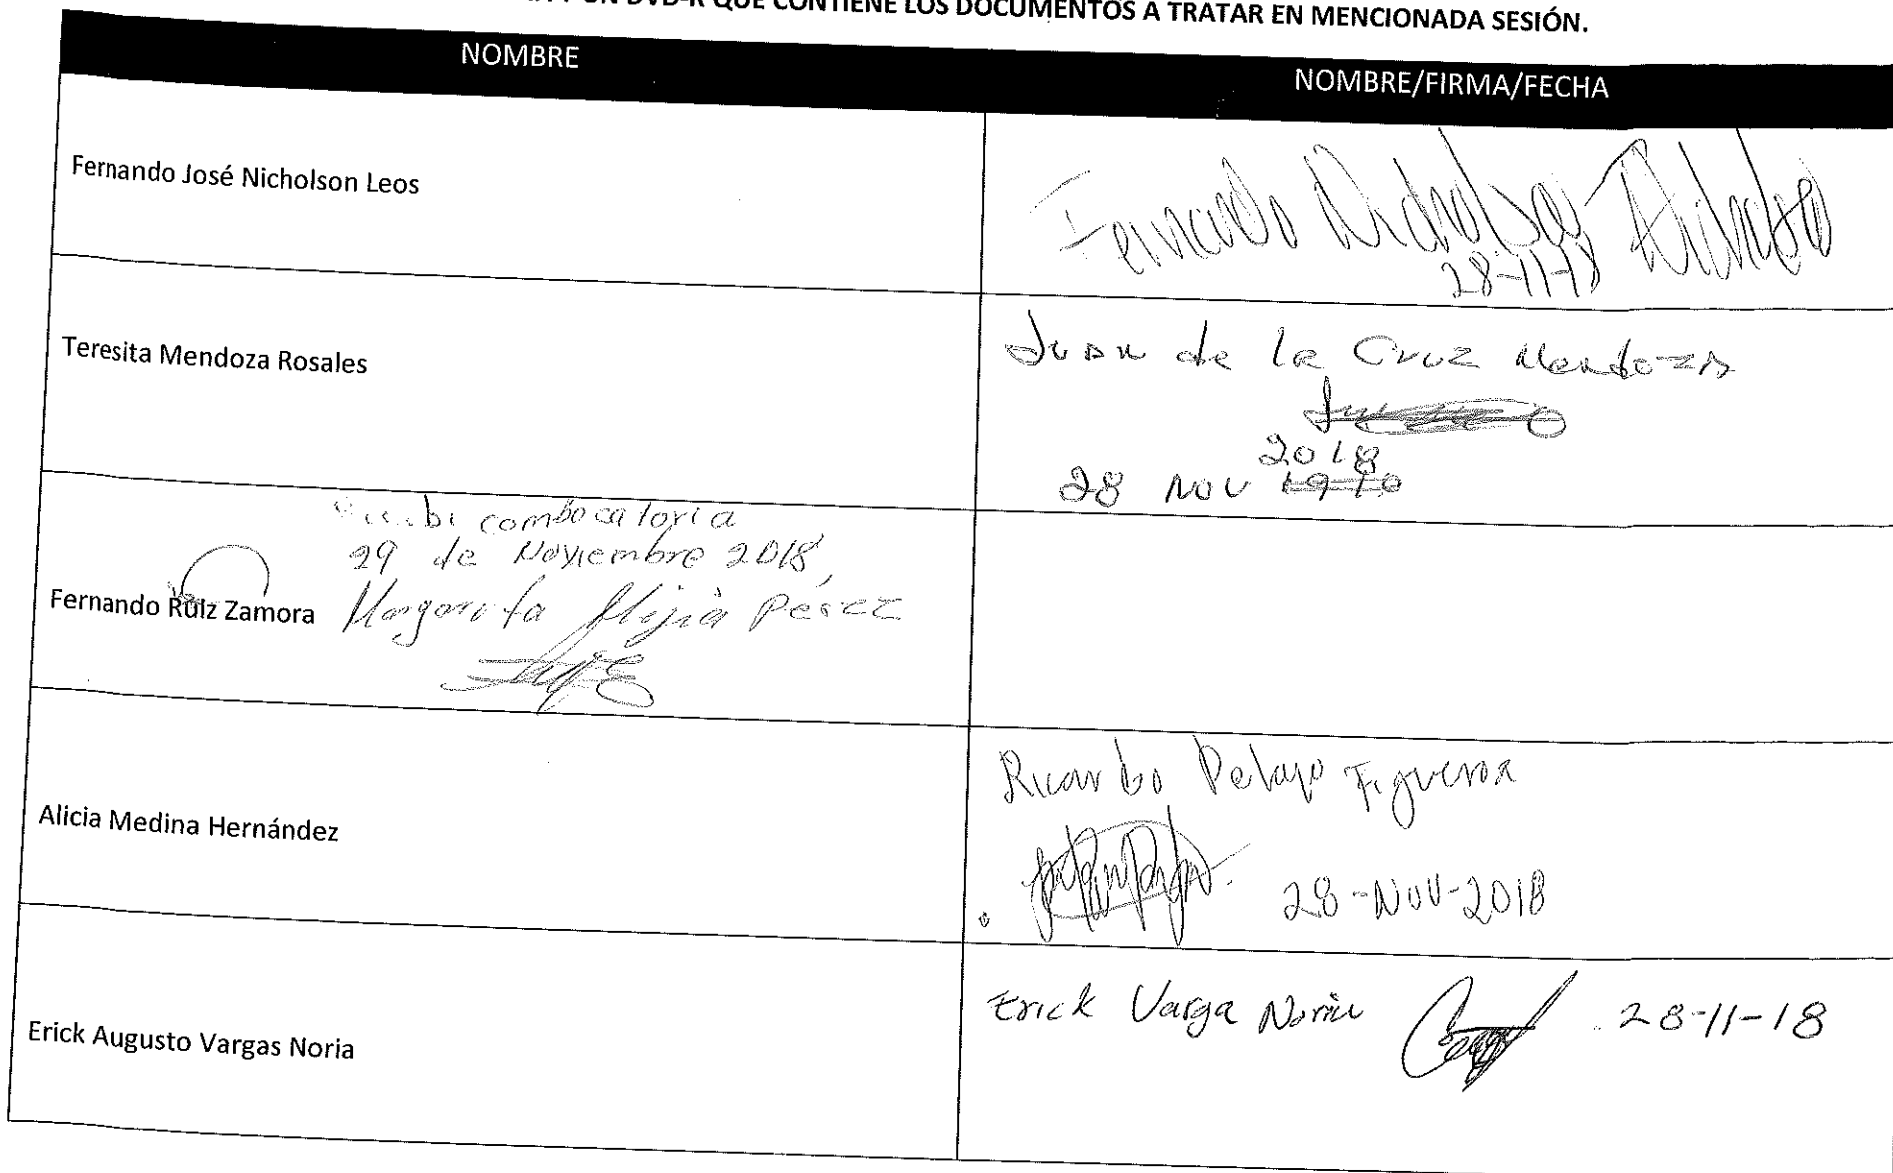 UN DVD-R QUE CONTIENE LOS DOCUMENTOS A TRATAR EN MENCIONADA SESIÓN.
NOMBRE
NOMBRE/FIRMA/FECHA
Fernando José Nicholson Leos
Fernando Nicholson
28-11-18
Teresita Mendoza Rosales
Juan de la Cruz Mendoza
2018
28 NOV 1910
combocatoria
29 de Noviembre 2018,
Fernando Ruiz Zamora
Margarita Mejia Perez
Alicia Medina Hernández
Ricardo Pelayo Figueroa
28-NOV-2018
Erick Augusto Vargas Noria
Erick Varga Noria 28-11-18